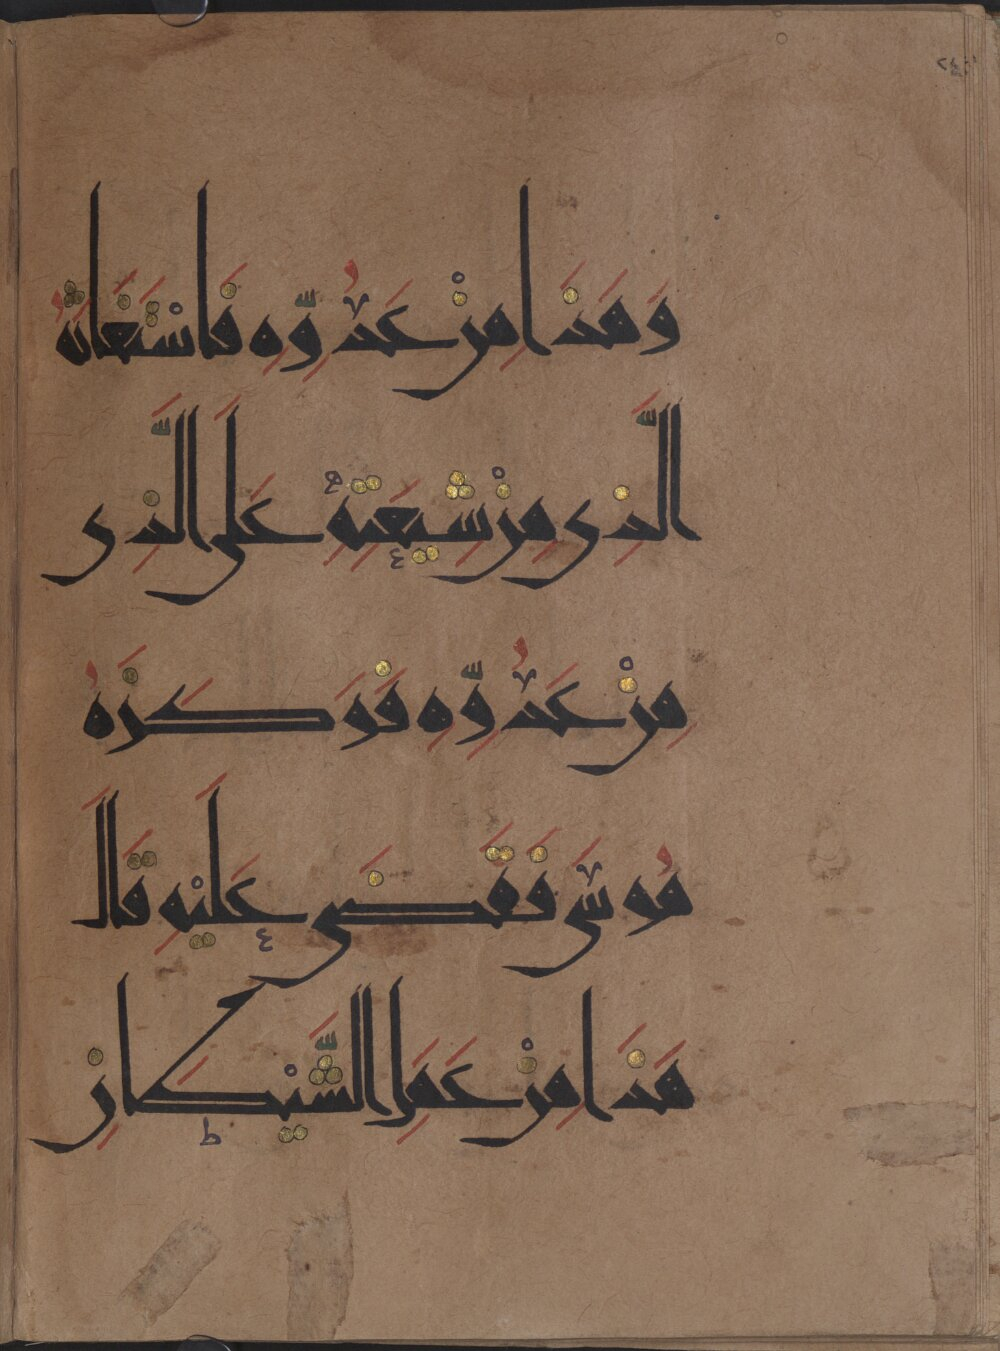 وَهَذَا مِنْ عَدُوِّهِ فَاسْتَغَاثَهُ
الَّذِي مِنْ شِيعَتِهِ عَلَى الَّذِي
مِنْ عَدُوِّهِ فَوَكَزَهُ
مُوسَى فَقَضَى عَلَيْهِ قَالَ
هَذَا مِنْ عَمَلِ الشَّيْطَانِ